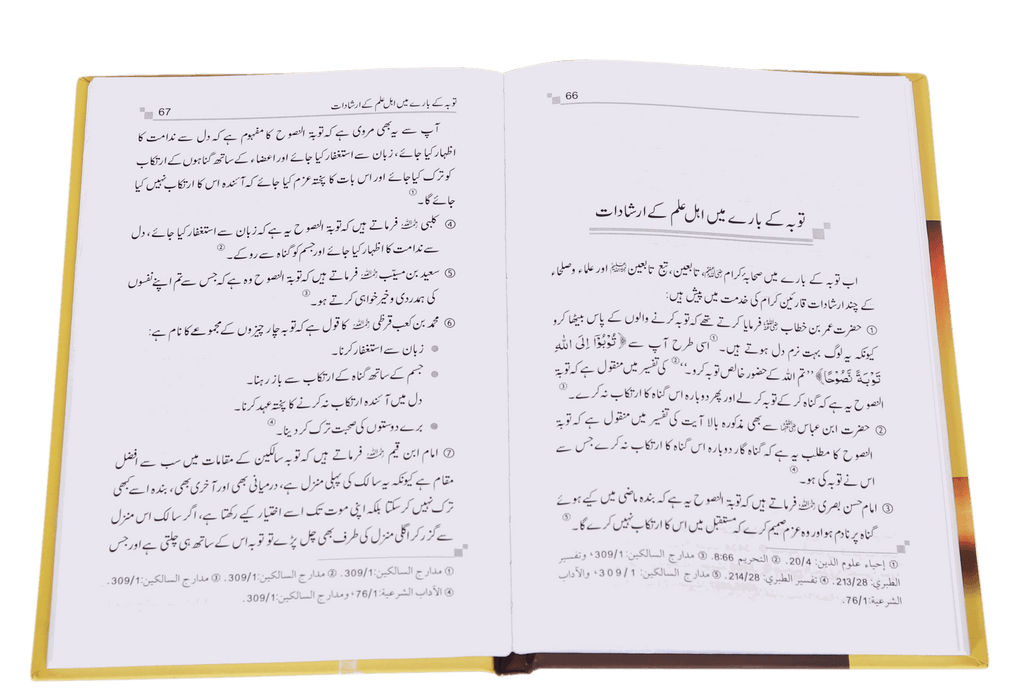 66
توبہ کے بارے میں اہل علم کے ارشادات
اب توبہ کے بارے میں صحابۂ کرام رضی اللہ عنہم، تابعین، تبع تابعین رحمہم اللہ اور علماء وصلحاء
کے چند ارشادات قارئین کرام کی خدمت میں پیش ہیں:
① حضرت عمر بن خطاب رضی اللہ عنہ فرمایا کرتے تھے کہ توبہ کرنے والوں کے پاس بیٹھا کرو
کیونکہ یہ لوگ بہت نرم دل ہوتے ہیں۔① اسی طرح آپ سے ﴿تُوْبُوْٓا اِلَى اللّٰهِ
تَوْبَةً نَّصُوْحًا﴾ ’’تم اللہ کے حضور خالص توبہ کرو۔‘‘② کی تفسیر میں منقول ہے کہ توبۃ
النصوح یہ ہے کہ گناہ کر کے توبہ کرلے اور پھر دوبارہ اس گناہ کا ارتکاب نہ کرے۔③
② حضرت ابن عباس رضی اللہ عنہما سے بھی مذکورہ بالا آیت کی تفسیر میں منقول ہے کہ توبۃ
النصوح کا مطلب یہ ہے کہ گناہ گار دوبارہ اس گناہ کا ارتکاب نہ کرے جس سے
اس نے توبہ کی ہو۔④
③ امام حسن بصری رحمہ اللہ فرماتے ہیں کہ توبۃ النصوح یہ ہے کہ بندہ ماضی میں کیے ہوئے
گناہ پر نادم ہو اور وہ عزم صمیم کرے کہ مستقبل میں اس کا ارتکاب نہیں کرے گا۔⑤
① إحیاء علوم الدین: 20/4. ② التحریم 8:66. ③ مدارج السالکین: 309/1، وتفسیر
الطبري: 213/28. ④ تفسیر الطبري: 214/28. ⑤ مدارج السالکین: 309/1، والآداب
الشرعیة: 76/1.
توبہ کے بارے میں اہل علم کے ارشادات 67
آپ سے یہ بھی مروی ہے کہ توبۃ النصوح کا مفہوم ہے کہ دل سے ندامت کا
اظہار کیا جائے، زبان سے استغفار کیا جائے اور اعضاء کے ساتھ گناہوں کے ارتکاب
کو ترک کیا جائے اور اس بات کا پختہ عزم کیا جائے کہ آئندہ اس کا ارتکاب نہیں کیا
جائے گا۔①
④ کلبی رحمہ اللہ فرماتے ہیں کہ توبۃ النصوح یہ ہے کہ زبان سے استغفار کیا جائے، دل
سے ندامت کا اظہار کیا جائے اور جسم کو گناہ سے روکے۔②
⑤ سعید بن مسیّب رحمہ اللہ فرماتے ہیں کہ توبۃ النصوح وہ ہے کہ جس سے تم اپنے نفسوں
کی ہمدردی و خیر خواہی کرتے ہو۔③
⑥ محمد بن کعب قرظی رحمہ اللہ کا قول ہے کہ توبہ چار چیزوں کے مجموعے کا نام ہے:
● زبان سے استغفار کرنا۔
● جسم کے ساتھ گناہ کے ارتکاب سے باز رہنا۔
دل میں آئندہ ارتکاب نہ کرنے کا پختہ عہد کرنا۔
● برے دوستوں کی صحبت ترک کر دینا۔④
⑦ امام ابن قیم رحمہ اللہ فرماتے ہیں کہ توبہ سالکین کے مقامات میں سب سے افضل
مقام ہے کیونکہ یہ سالک کی پہلی منزل ہے، درمیانی بھی اور آخری بھی، بندہ اسے کبھی
ترک نہیں کر سکتا بلکہ اپنی موت تک اسے اختیار کیے رکھتا ہے، اگر سالک اس منزل
سے گزر کر اگلی منزل کی طرف بھی چل پڑے تو توبہ اس کے ساتھ ہی چلتی ہے اور جس
① مدارج السالکین: 309/1. ② مدارج السالکین: 309/1. ③ مدارج السالکین: 309/1.
④ الآداب الشرعیة: 76/1، ومدارج السالکین: 309/1.